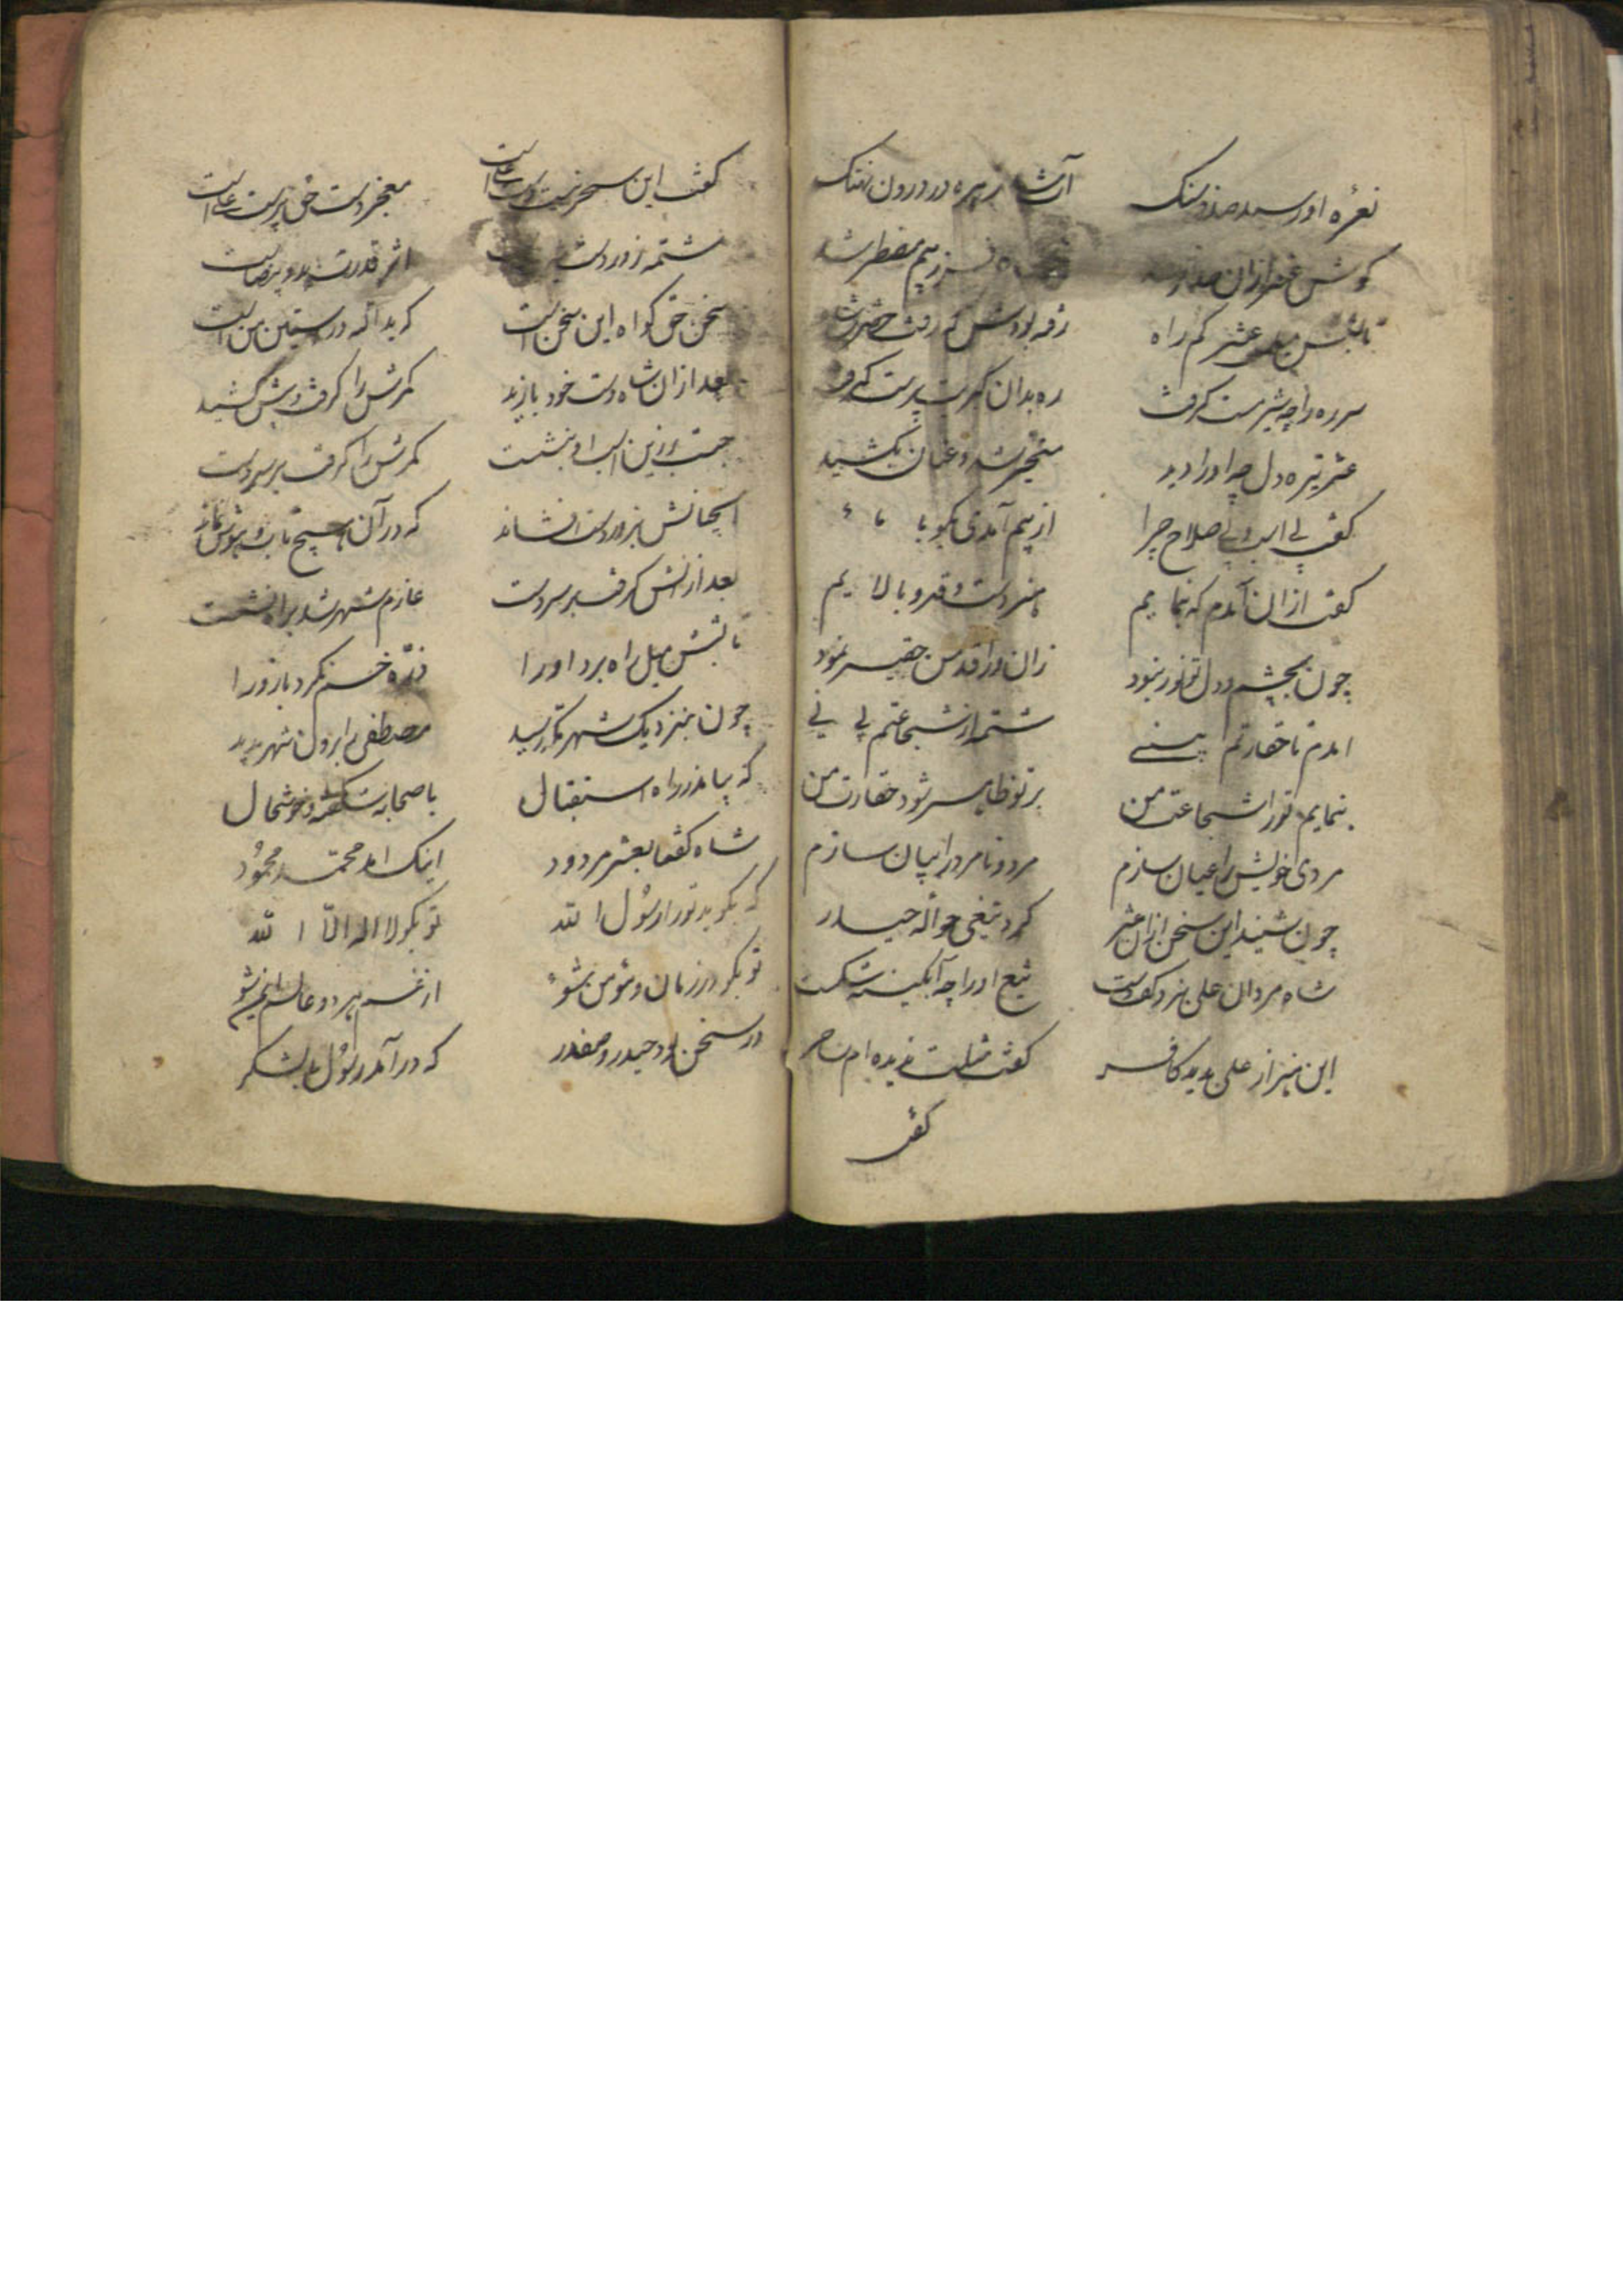 نعره او رسید صد فرسنگ
آب شد زهره در درون نهنگ
گوش عنتر از آن صدا
زبیم مضطر شد
تا بشش میل عنتر گم راه
رفته بودش که رفت حضرت شاه
سر ره را چه شیر مست گرفت
ره بدان گبر بت پرست گرفت
عنتر تیره دل چه او را دید
متحیر شد و عنان بکشید
گفت بی اسب و بی صلاح چرا
از پیم آمدی بگو با ما
گفت از آن آمدم که بنمایم
هنر دست و قد و بالایم
چون بچشم و دل تو نور نبود
زان ورا قد من حقیر نمود
آمدم تا حقارتم بینی
شمه از شجاعتم بینی
بنمایم تو را شجاعت من
بر تو ظاهر شود حقارت من
مردی خویش را عیان سازم
مرد و نامرد را بیان سازم
چون شنید این سخن ازان عنتر
کرد تیغی حواله حیدر
شاه مردان علی بزد کف دست
تیغ او را چه آبگینه شکست
این هنر از علی بدید کافر
گفت مثلت ندیده ام ساحر
گفت
گفت این سحر نیست دست علی است
معجز دست حق پرست علی است
شمه زور دست
اثر قدرت
سخن حق گواه این سخن است
که ید الله در آستین من است
بعد از آن شاه دست خود یازید
کمرش را گرفت و پیش کشید
جست و از زین اسب او بنشست
کمرش را گرفت بر سر دست
آنچنانش بزور دست افشاند
که در آن هیچ تاب و هوش نماند
بعد از آنش گرفت بر سر دست
عازم شهر شد براه نشست
تا بشش میل راه برد او را
ذره خم نکرد بازو را
چون بنزدیک شهر مکه رسید
مصطفی را برون شهر بدید
که بیامد ز راه استقبال
با صحابه شکفته و خوشحال
شاه گفتا بعنتر مردود
اینک آمد محمد محمود
که بگوید تو را رسول الله
تو بگو لا اله الا الله
تو بگو در زمان و مؤمن شو
از غم هر دو عالم ایمن شو
در سخن بود حیدر و صفدر
که در آمد رسول با لشکر